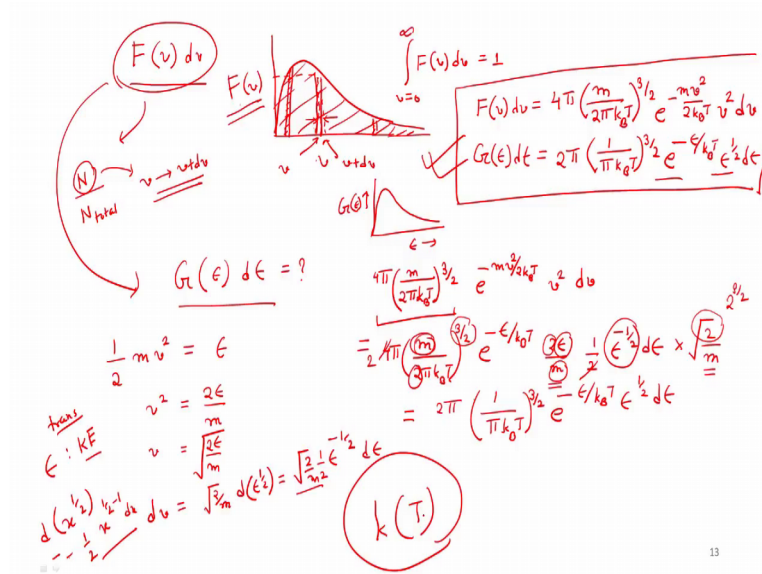 F(v) dv
F(v)
v
v
v+dv
∫_{v=0}^{∞} F(v) dv = 1
F(v) dv = 4π (m/2πk_BT)^{3/2} e^{-mv²/2k_BT} v² dv
G(ε) dε = 2π (1/πk_BT)^{3/2} e^{-ε/k_BT} ε^{1/2} dε
N
N_total
v → v+dv
G(ε)↑
ε →
G(ε) dε = ?
4π (m/2πk_BT)^{3/2} e^{-mv²/2k_BT} v² dv
= 2 4π (m/2πk_BT)^{3/2} e^{-ε/k_BT} 2ε/m 1/2 ε^{-1/2} dε × √(2/m) 2^{3/2}
= 2π (1/πk_BT)^{3/2} e^{-ε/k_BT} ε^{1/2} dε
1/2 mv² = ε
v² = 2ε/m
trans
ε : KE
v = √(2ε/m)
dv = √(2/m) d(ε^{1/2}) = √(2/m) 1/2 ε^{-1/2} dε
d(x^{1/2})
-- 1/2 x^{1/2-1} dx
k(T)
13